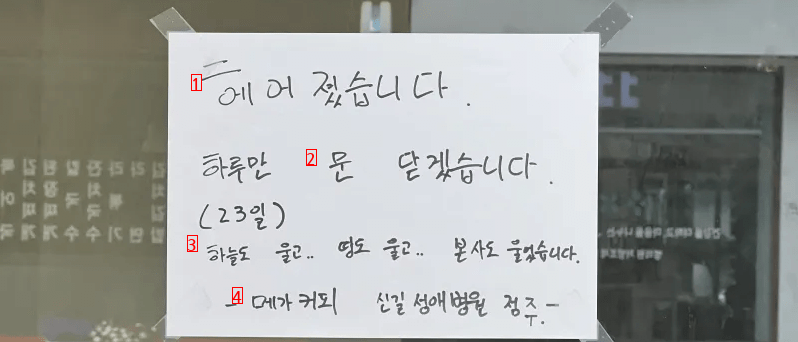 1 헤어 졌습니다.
하루만 2 문 닫겠습니다.
(23일)
3 하늘도 울고.. 땅도 울고.. 본사도 울었습니다.
4 - 메가 커피 신길 성애병원 점주.-